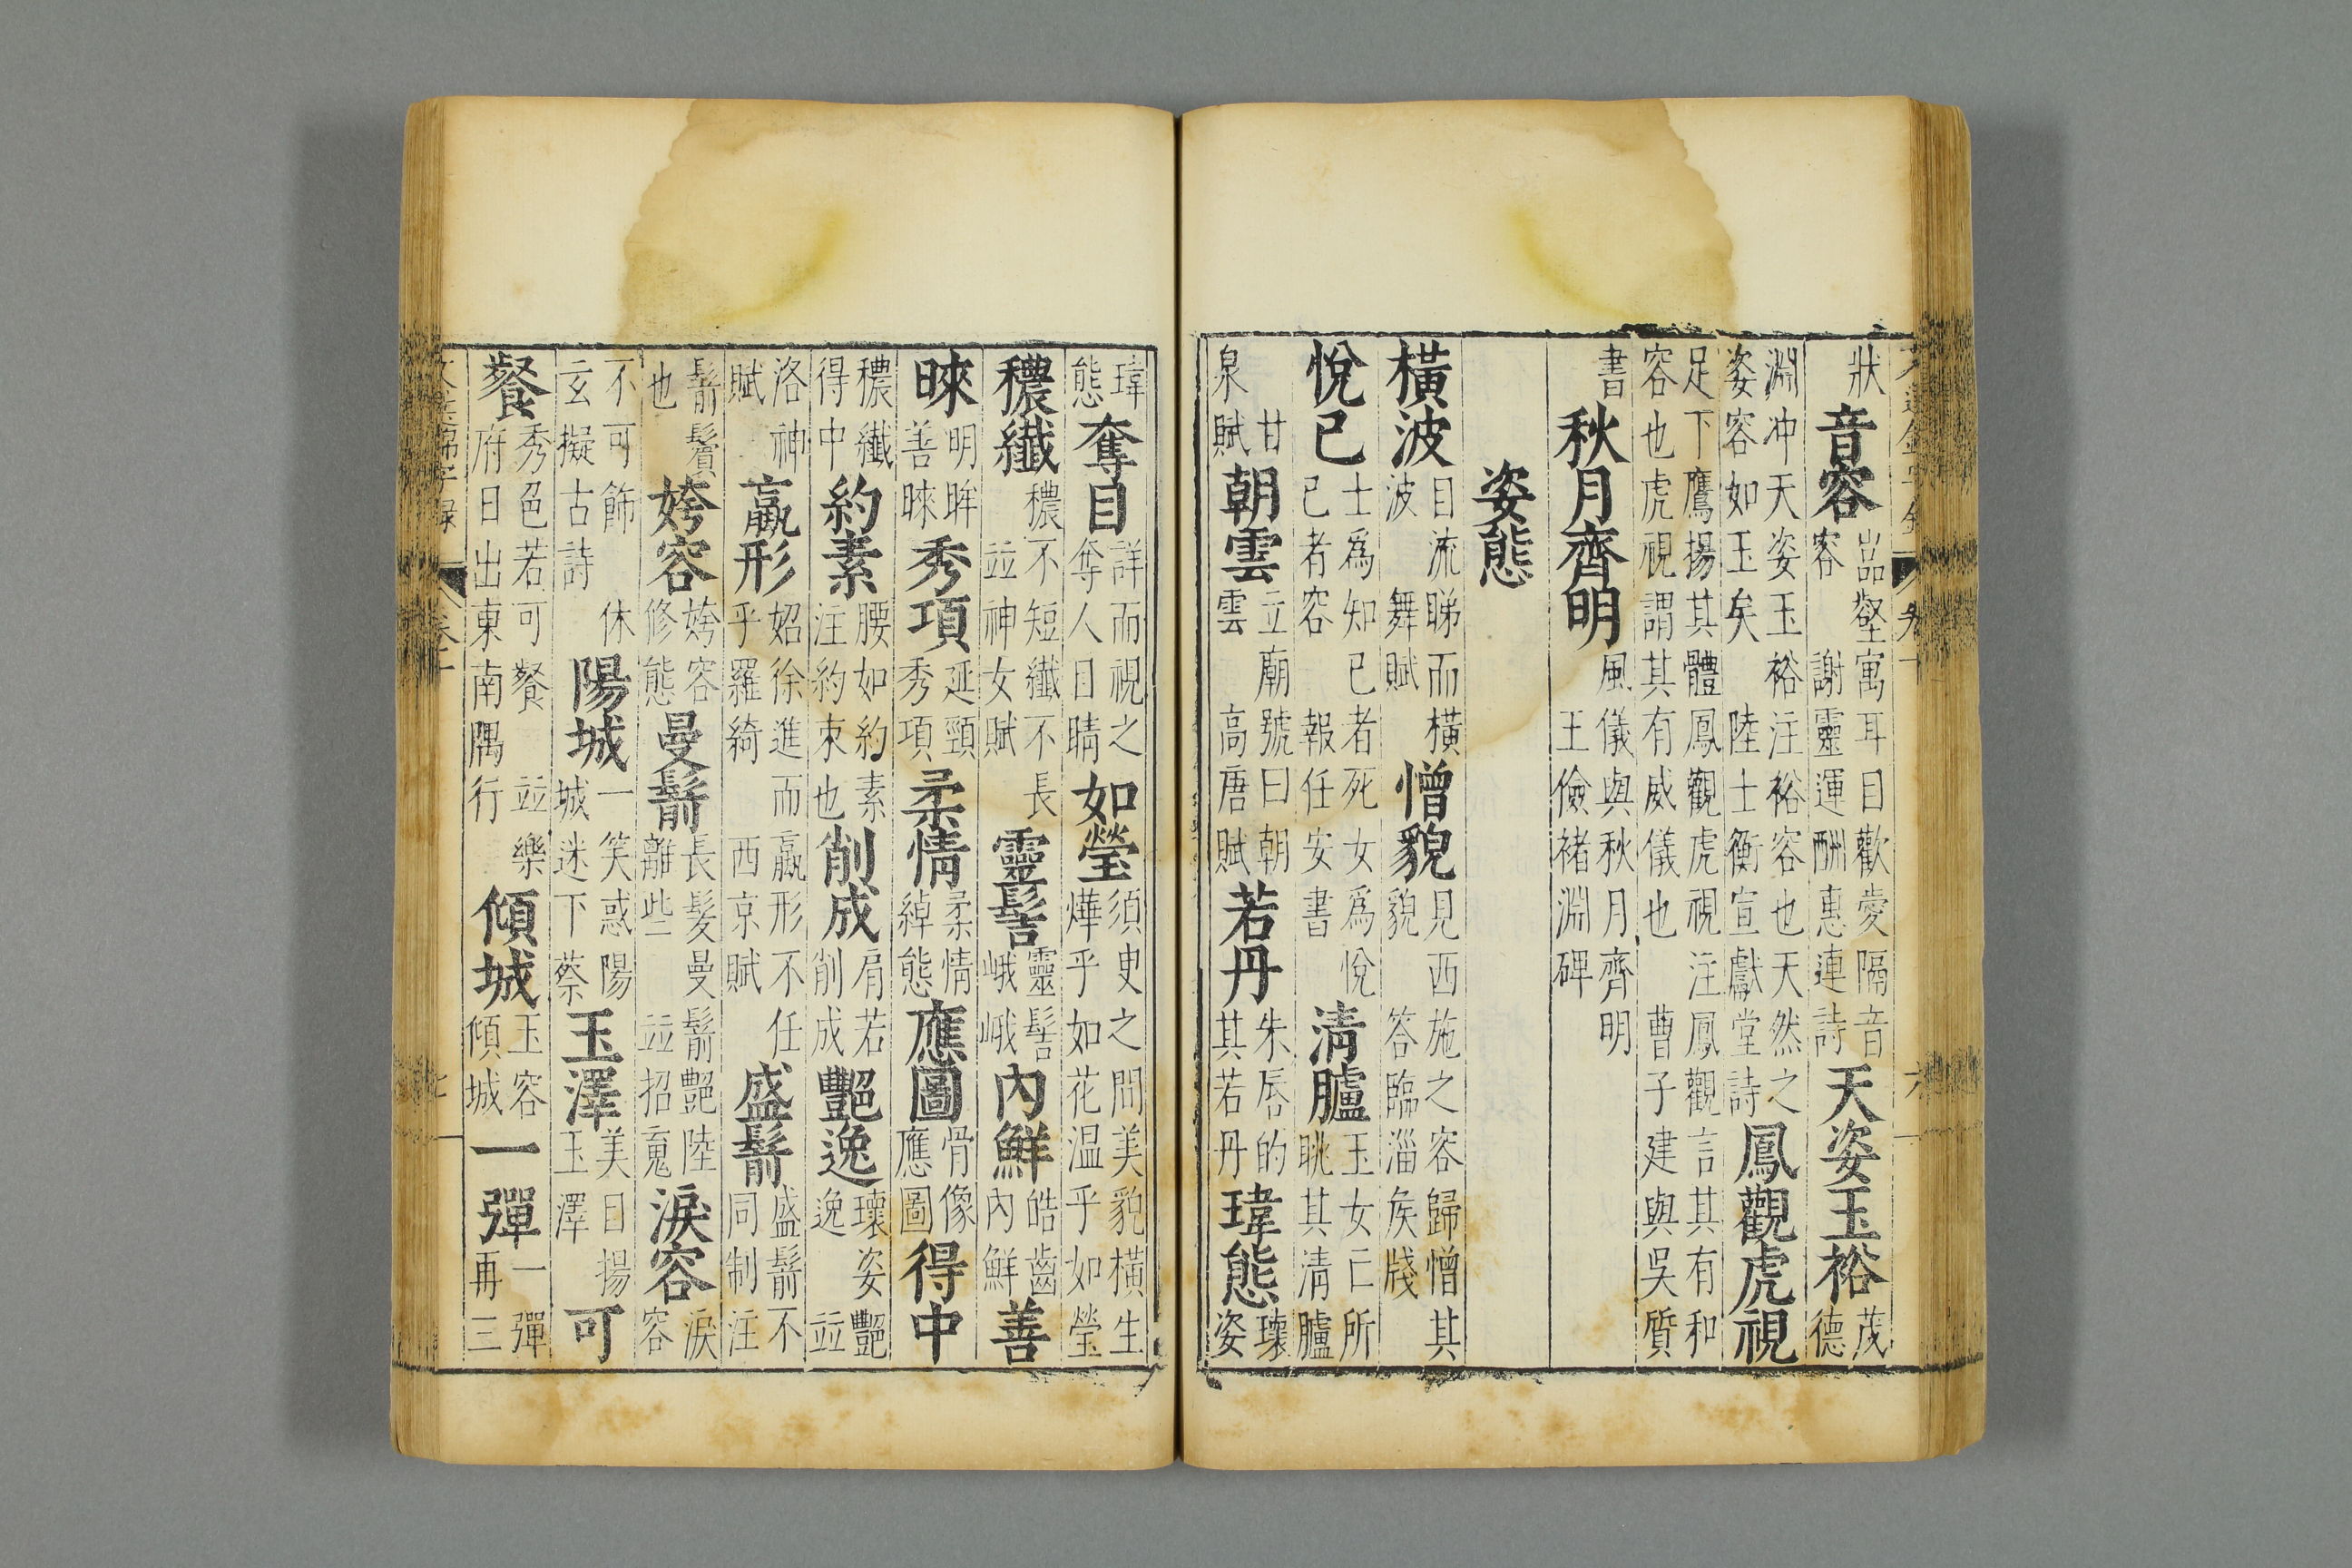 狀音容嵓壑寓耳目歡愛隔音容謝靈運酬惠連詩天姿玉裕茂德
淵冲天姿玉裕注裕容也天然之姿容如玉矣陸士衡宣獻堂詩鳳觀虎視
足下鷹揚其體鳳觀虎視注鳳觀言其有和容也虎視謂其有威儀也曹子建與吳質
書秋月齊明風儀與秋月齊明王儉褚淵碑
姿態
橫波目流睇而橫波舞賦憎貌見西施之容歸憎其貌答臨淄矦牋
悅己士爲知己者死女爲悅己者容報任安書清臚玉女亡所眺其清臚
甘泉賦朝雲立廟號曰朝雲高唐賦若丹朱唇的其若丹瑋態瓌姿
瑋態奪目詳而視之奪人目睛如瑩須臾之間美貌橫生燁乎如花温乎如瑩
穠纖穠不短纖不長並神女賦靈髻靈髻峨峨內鮮皓齒內鮮善
睞明眸善睞秀項延頸秀項柔情柔情綽態應圖骨像應圖得中
穠纖得中約素腰如約素注約束也削成肩若削成艷逸瓌姿艷逸並
洛神賦嬴形妱徐進而嬴形不任乎羅綺西京賦盛鬋盛鬋不同制注
鬋鬢也姱容姱容修態曼鬋長髮曼鬋艷陸離些並招䰟淚容淚容
不可飾休玄擬古詩陽城一笑惑陽城迷下蔡玉澤美目揚玉澤可
餐秀色若可餐並樂府日出東南隅行傾城玉容傾城一彈一彈再三